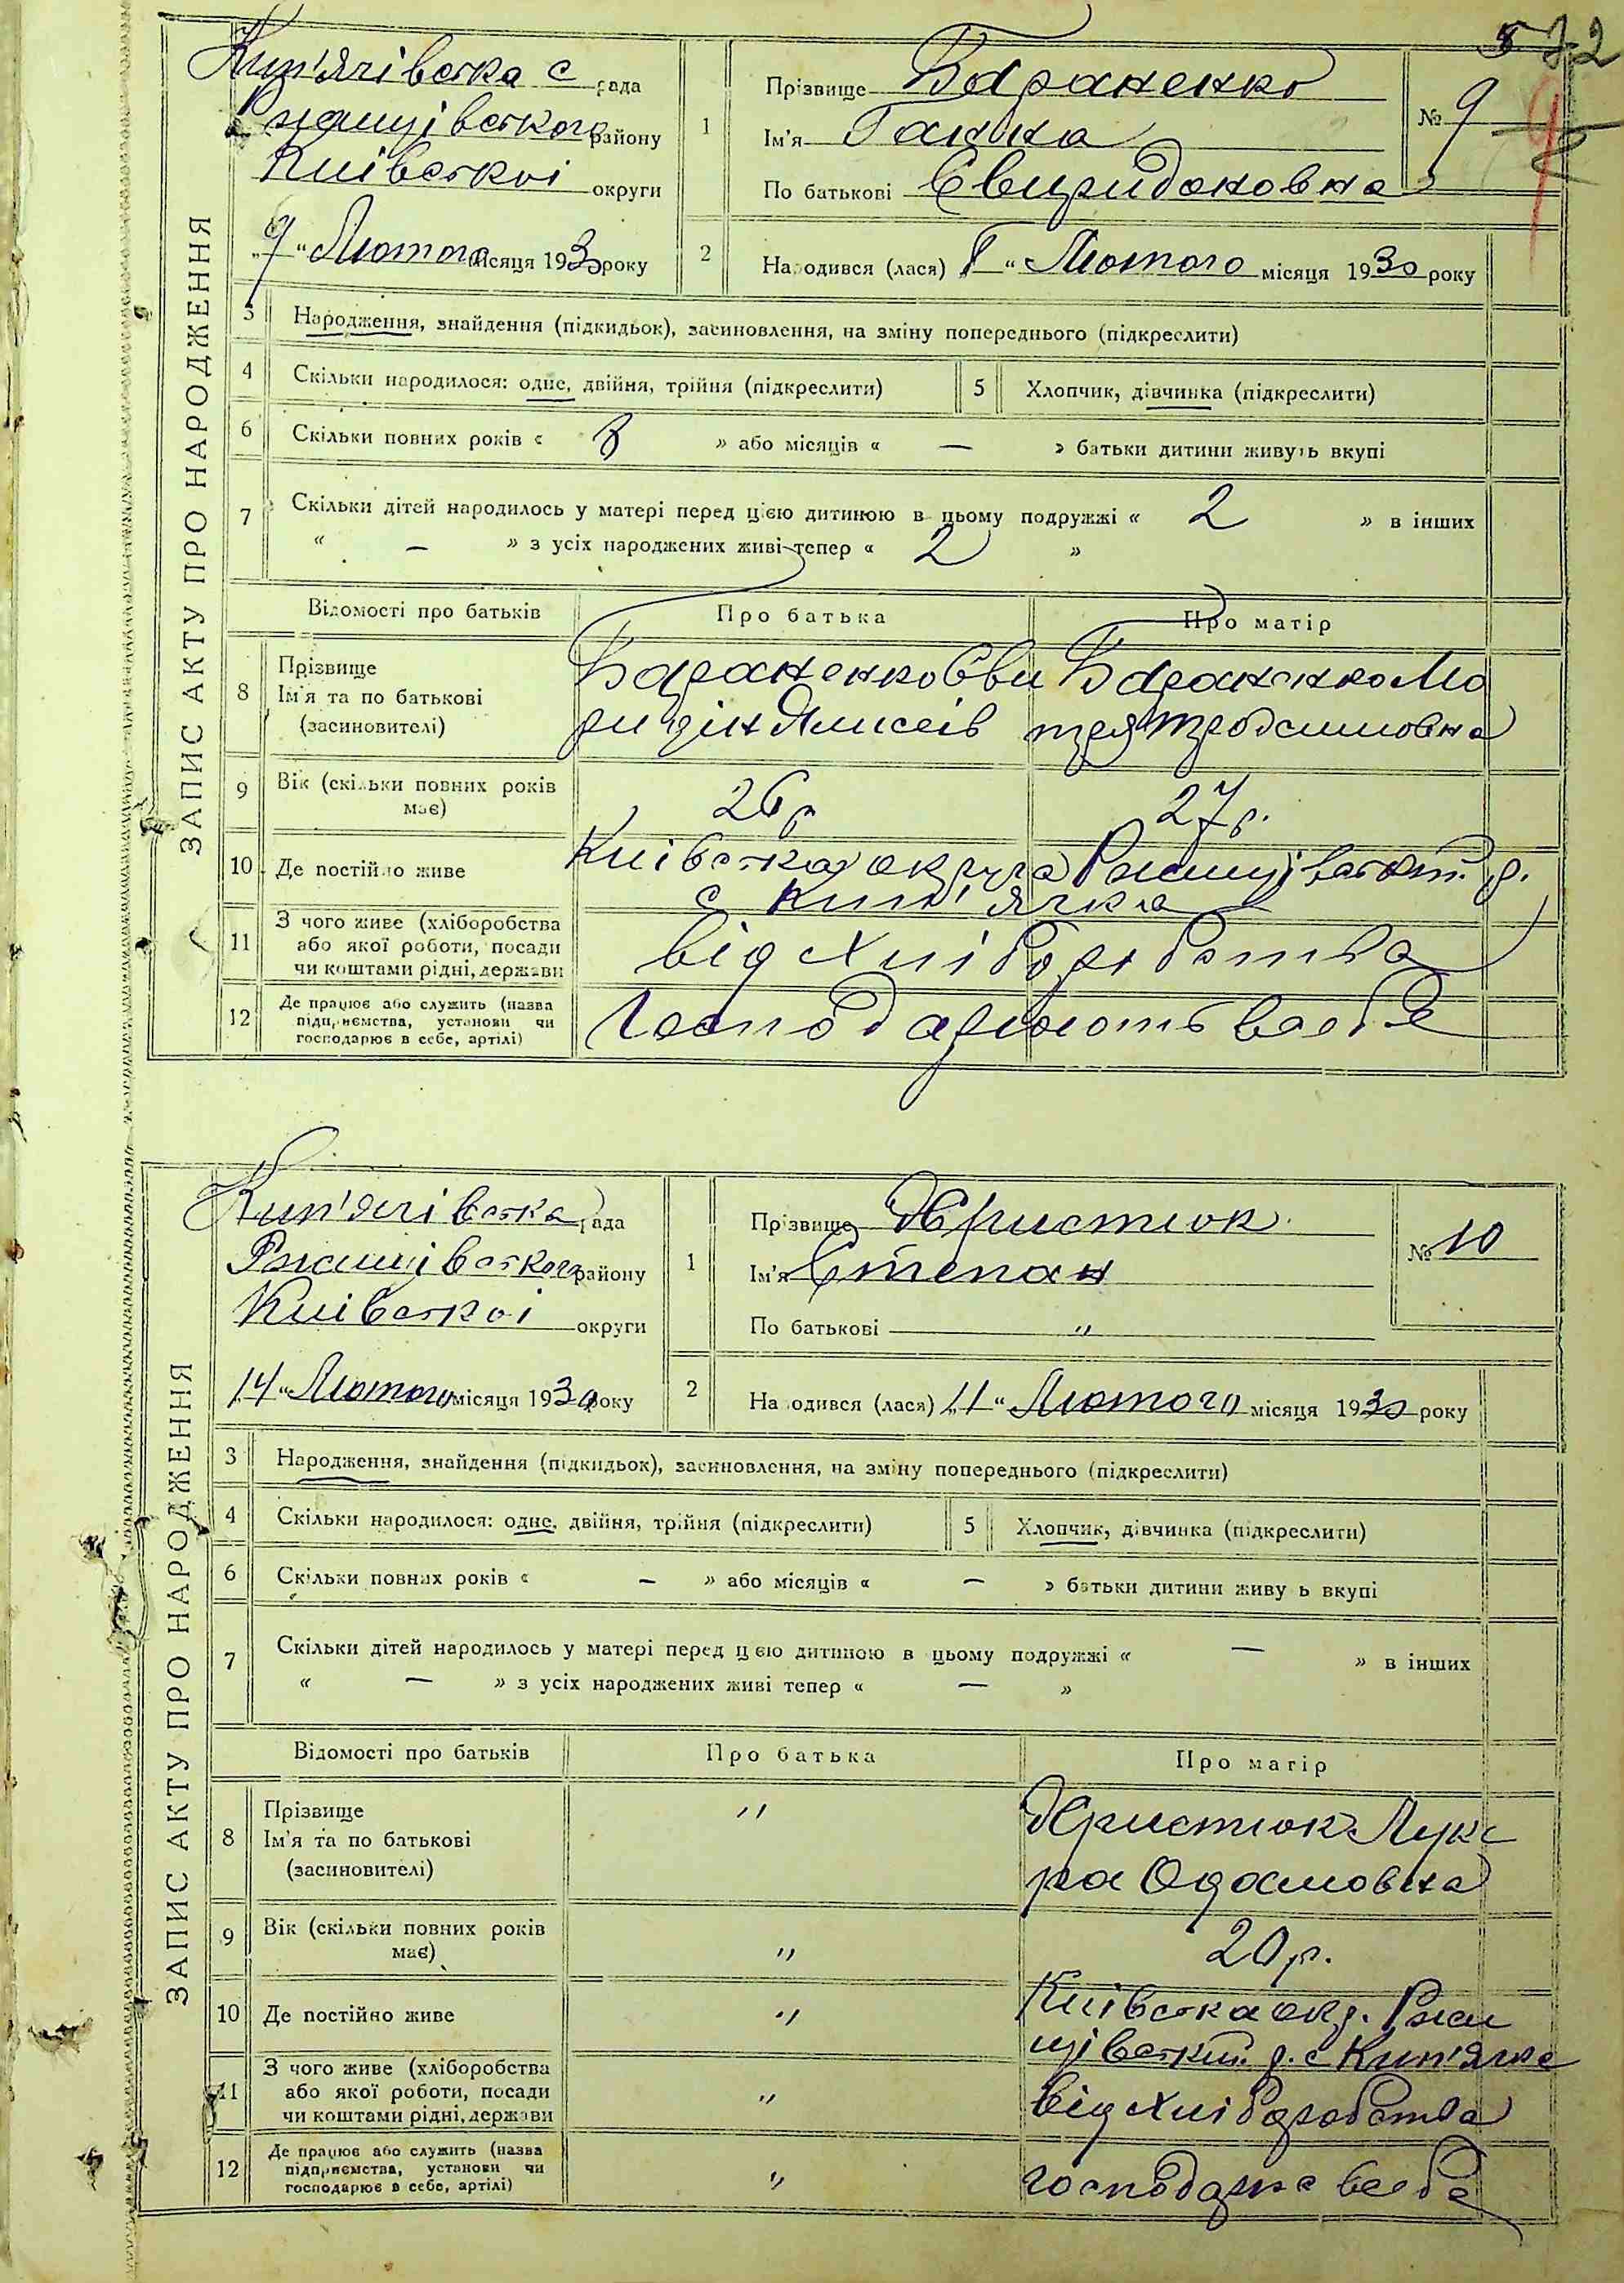 ЗАПИС АКТУ ПРО НАРОДЖЕННЯ
Кип'ячівска с рада
району
Київскоі округи
"9" Лютого місяця 1930 року
1
Прізвище Бараненко
Ім'я Ганна
По батькові Свиридоновна
№ 9
2
Народився (лася) " Лютого місяця 1930 року
3 Народження, знайдення (підкидьок), засиновлення, на зміну попереднього (підкреслити)
4 Скільки народилося: одне, двійня, трійня (підкреслити) 5 Хлопчик, дівчинка (підкреслити)
6 Скільки повних років « 8 » або місяців « — » батьки дитини живуть вкупі
7 Скільки дітей народилось у матері перед цією дитиною в цьому подружжі « 2 » в інших
« — » з усіх народжених живі тепер « 2 »
Відомості про батьків Про батька Про матір
8 Прізвище
Ім'я та по батькові
(засиновителі)
Бараненко Сви
Бараненко Мо
9 Вік (скільки повних років
має)
26 р
27 р.
10 Де постійно живе
Київска округа Ржищівский р.
с Кип'ячка
11 З чого живе (хліборобства
або якої роботи, посади
чи коштами рідні, держави
від хліборобства
12 Де працює або служить (назва
підприємства, установи чи
господарює в себе, артілі)
Господарюють в себе
ЗАПИС АКТУ ПРО НАРОДЖЕННЯ
Кип'ячівска рада
Ржищівского району
Київскоі округи
"14" Лютого місяця 1930 року
1
Прізвище Христюк
Ім'я Степан
По батькові "
№ 10
2
Народився (лася) "11" Лютого місяця 1930 року
3 Народження, знайдення (підкидьок), засиновлення, на зміну попереднього (підкреслити)
4 Скільки народилося: одне, двійня, трійня (підкреслити) 5 Хлопчик, дівчинка (підкреслити)
6 Скільки повних років « — » або місяців « — » батьки дитини живу ь вкупі
7 Скільки дітей народилось у матері перед цією дитиною в цьому подружжі « — » в інших
« — » з усіх народжених живі тепер « — »
Відомості про батьків Про батька Про матір
8 Прізвище
Ім'я та по батькові
(засиновителі)
"
Христюк Луке
ра Одамовна
9 Вік (скільки повних років
має)
"
20 р.
10 Де постійно живе
"
Київска окр. Ржи
щівский р. с Кип'ячка
11 З чого живе (хліборобства
або якої роботи, посади
чи коштами рідні, держави
"
від хліборобства
12 Де працює або служить (назва
підприємства, установи чи
господарює в себе, артілі)
"
господарює в себе